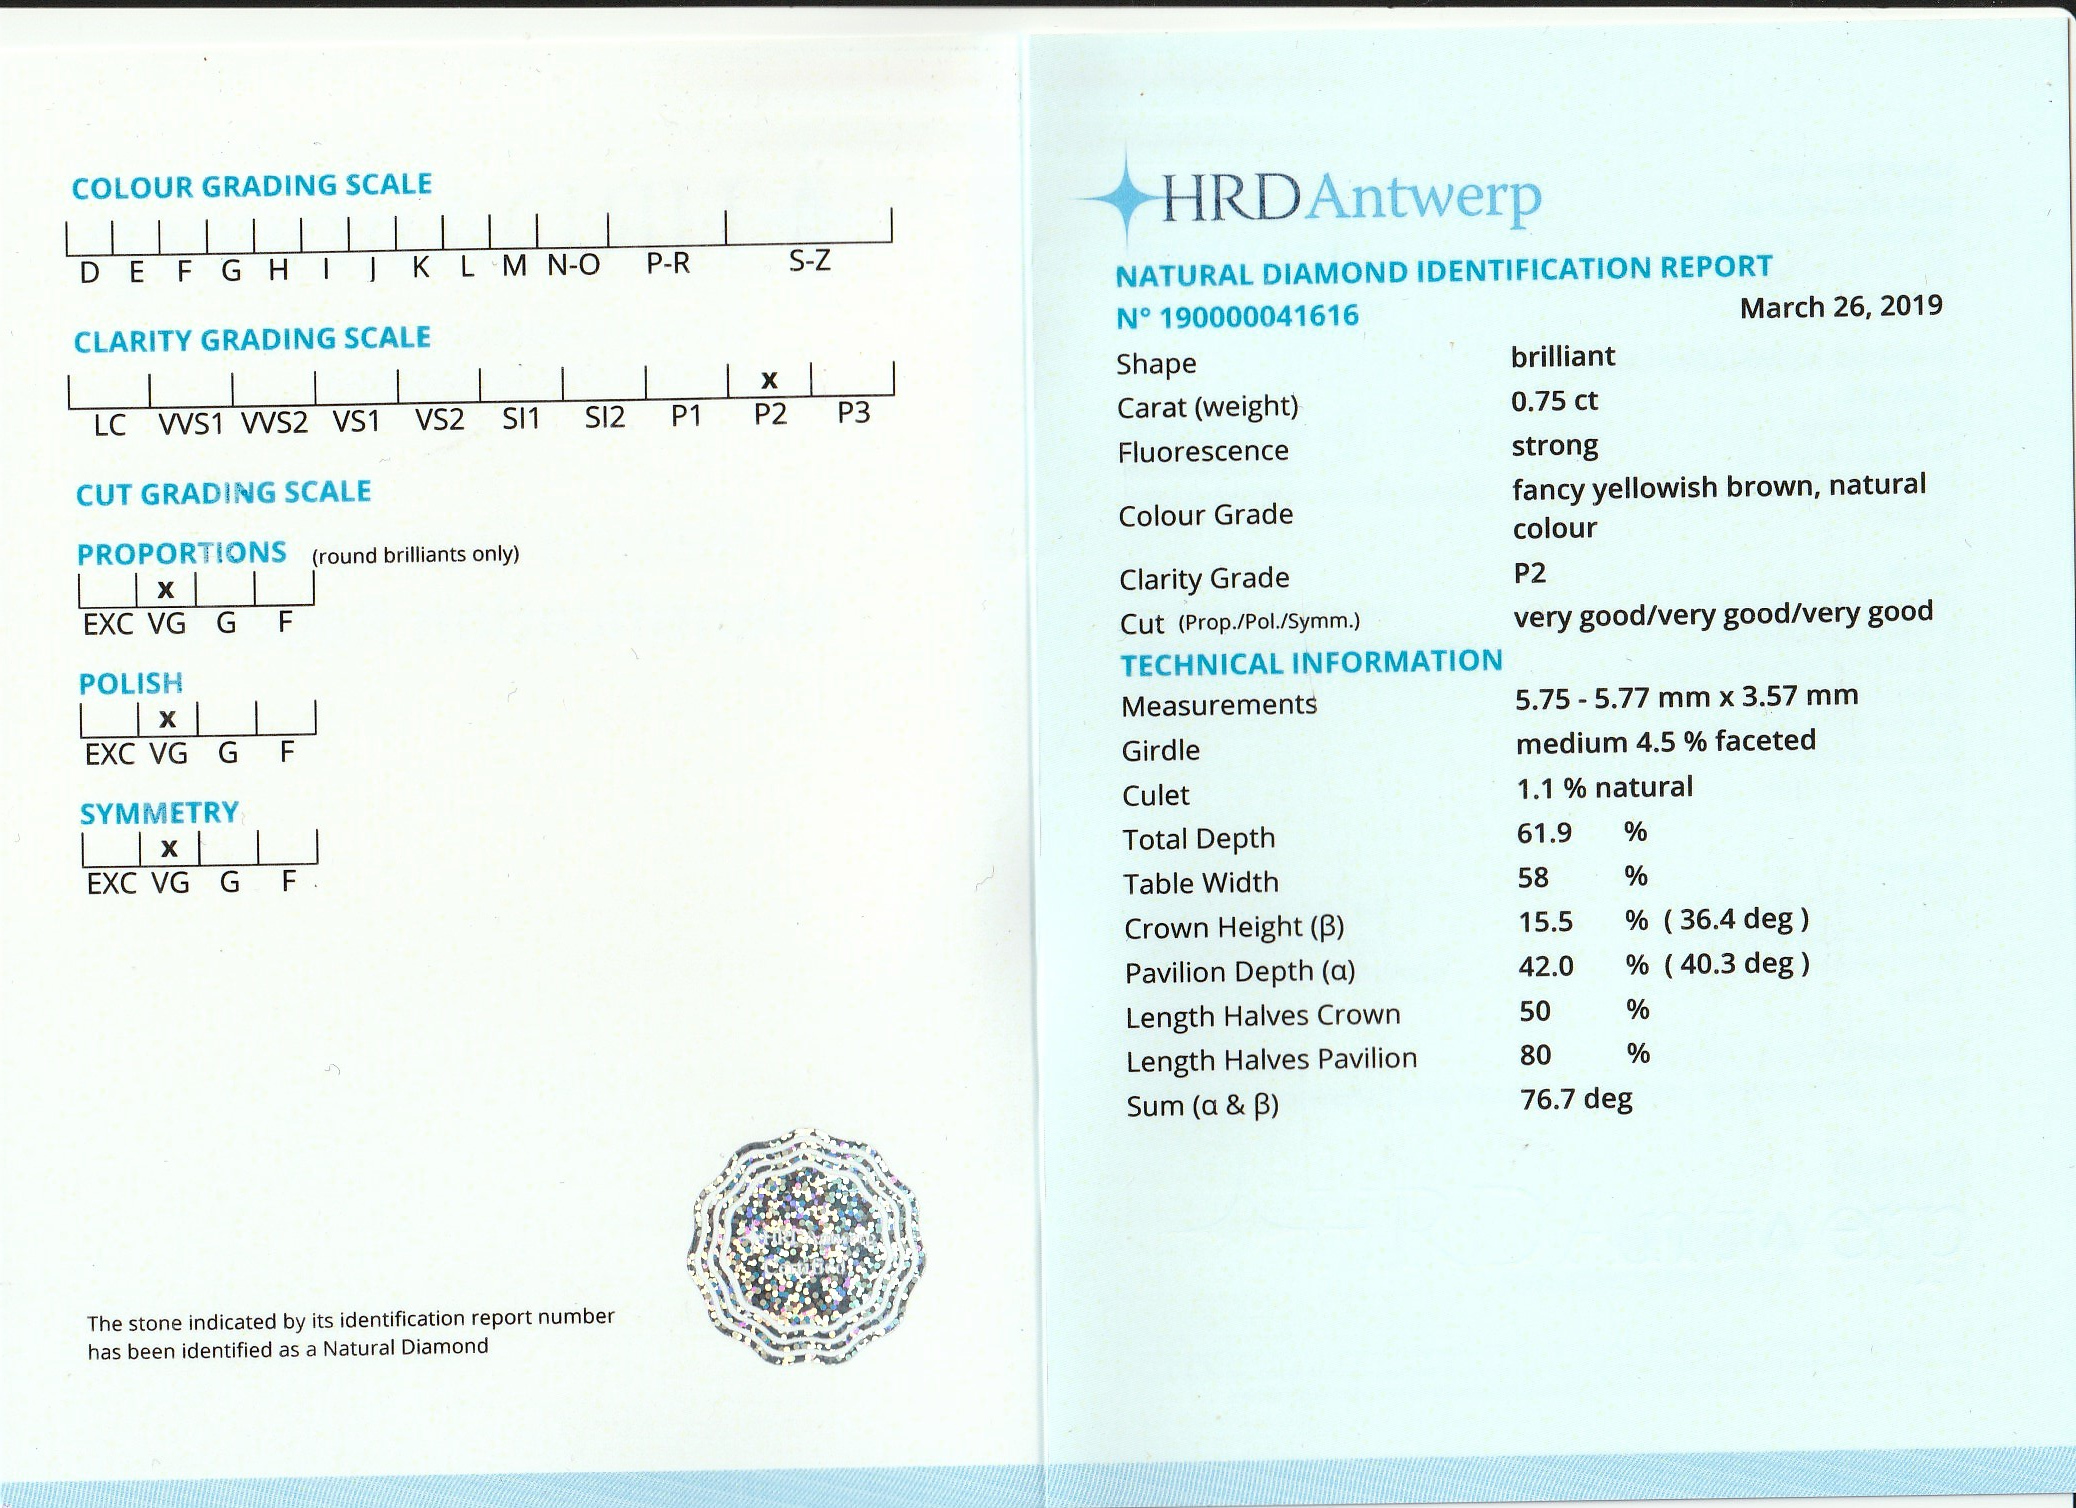 COLOUR GRADING SCALE
D E F G H I J K L M N-O P-R S-Z
CLARITY GRADING SCALE
x
LC VVS1 VVS2 VS1 VS2 SI1 SI2 P1 P2 P3
CUT GRADING SCALE
PROPORTIONS (round brilliants only)
x
EXC VG G F
POLISH
x
EXC VG G F
SYMMETRY
x
EXC VG G F
The stone indicated by its identification report number
has been identified as a Natural Diamond
HRD Antwerp
NATURAL DIAMOND IDENTIFICATION REPORT
N° 190000041616 March 26, 2019
Shape brilliant
Carat (weight) 0.75 ct
Fluorescence strong
Colour Grade fancy yellowish brown, natural
colour
Clarity Grade P2
Cut (Prop./Pol./Symm.) very good/very good/very good
TECHNICAL INFORMATION
Measurements 5.75 - 5.77 mm x 3.57 mm
Girdle medium 4.5 % faceted
Culet 1.1 % natural
Total Depth 61.9 %
Table Width 58 %
Crown Height (β) 15.5 % ( 36.4 deg )
Pavilion Depth (α) 42.0 % ( 40.3 deg )
Length Halves Crown 50 %
Length Halves Pavilion 80 %
Sum (α & β) 76.7 deg